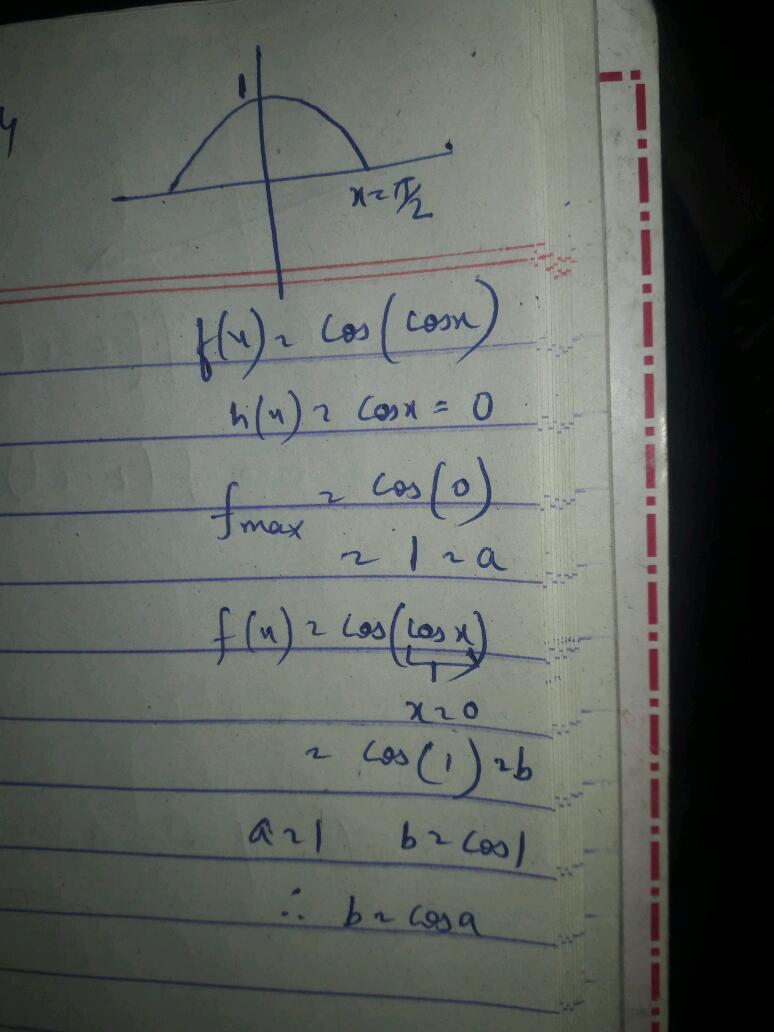 y
1
x = π/2
f(x) = cos(cosx)
h(x) = cosx = 0
fmax = cos(0)
= 1 = a
f(x) = cos(cosx)
x = 0
= cos(1) = b
a = 1 b = cos1
∴ b = cosa